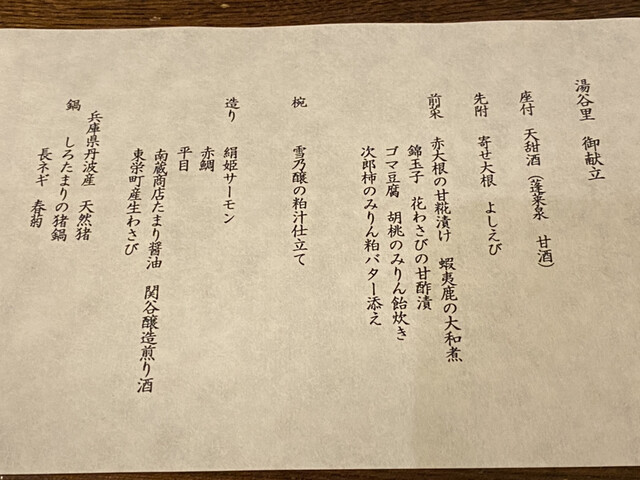 湯谷里 御献立
座付 天甜酒(蓬莱泉 甘酒)
先附 寄せ大根 よしえび
前菜 赤大根の甘糀漬け 蝦夷鹿の大和煮
錦玉子 花わさびの甘酢漬
ゴマ豆腐 胡桃のみりん飴炊き
次郎柿のみりん粕バター添え
椀 雪乃醸の粕汁仕立て
造り 絹姫サーモン
赤鯛
平目
南蔵商店たまり醤油 関谷醸造煎り酒
東栄町産生わさび
鍋 兵庫県丹波産 天然猪
しろたまりの猪鍋
長ネギ 春菊